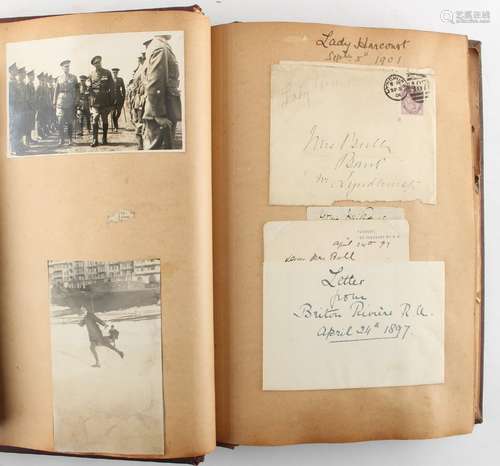 Lady Harcourt
Septr 5th 1901
Mrs Bull
Bank
Nr Lyndhurst
April 24th 97
Dear Mrs Bull
Letter
from
Briton Riviere R.A.
April 24th 1897.